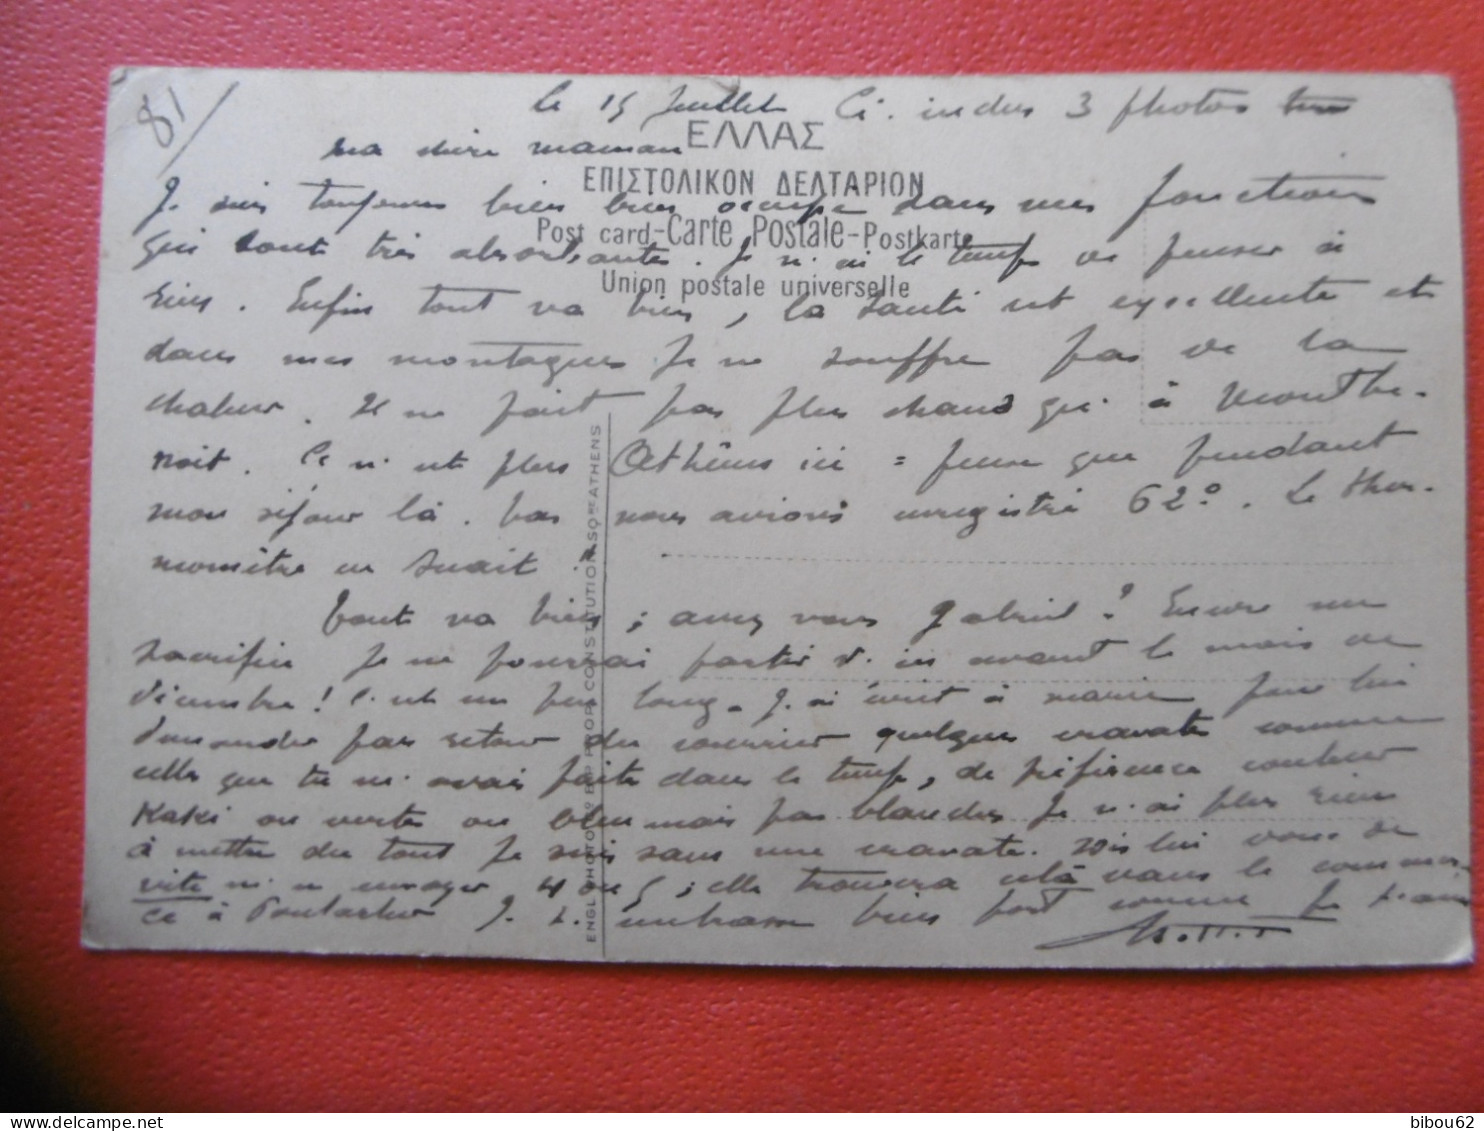 81
le 15 Juillet Ci. inclus 3 photos
ma chère maman
ΕΛΛΑΣ
ΕΠΙΣΤΟΛΙΚΟΝ ΔΕΛΤΑΡΙΟΝ
Post card-Carte Postale-Postkarte
Union postale universelle
Je suis toujours bien bien occupé dans mes fonctions
qui sont très absorbantes. Je n'ai le temps de penser à
rien. Enfin tout va bien, la santé est excellente et
dans mes montagnes je ne souffre pas de la
chaleur. Il ne fait pas plus chaud qu'à Monthe-
noit. Ce n'est plus Athènes ici = pense que pendant
mon séjour là. bas nous avions enregistré 62°. Le ther-
momètre en suait."
Tout va bien; avez vous Gabriel? Encore un
sacrifice je ne pourrai partir d'ici avant le mois de
décembre! C'est un peu long. J'ai écrit à Marie pour lui
demander par retour du courrier quelques cravates comme
celles que tu m'avais faites dans le temps, de préférence couleur
Kaki ou vertes ou bleu mais pas blanches je n'ai plus rien
à mettre du tout je suis sans une cravate. Dis lui donc de
vite m'en envoyer 4 ou 5; elle trouvera cela dans le commer-
ce à Pontarlier J. t. embrasse bien fort comme je t'aime
ENGL PHOTO BD PROP. CONSTITUTION SQre ATHENS
bibou62